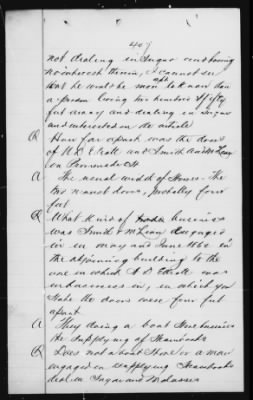 407
not dealing in Sugar and having
no interest therein, I cannot see
that he would be more apt to know than
a person living two hundred & fifty
feet away and dealing in Sugar
and interested in the article
Q How far apart was the doors
of and Smith
on
A The usual width of House. The
was next door, probably four
feet
Q What kind of business
was Smith & McLean engaged
in in May and June 1862 in
the adjoining building to the
one in which was
in business in, in which you
state the doors were four feet
apart
A They doing a boat Store business
the Supplying of Steamboats
Q Does not a boat Store or a man
engaged in supplying Steamboats
deal in Sugar and Molasses